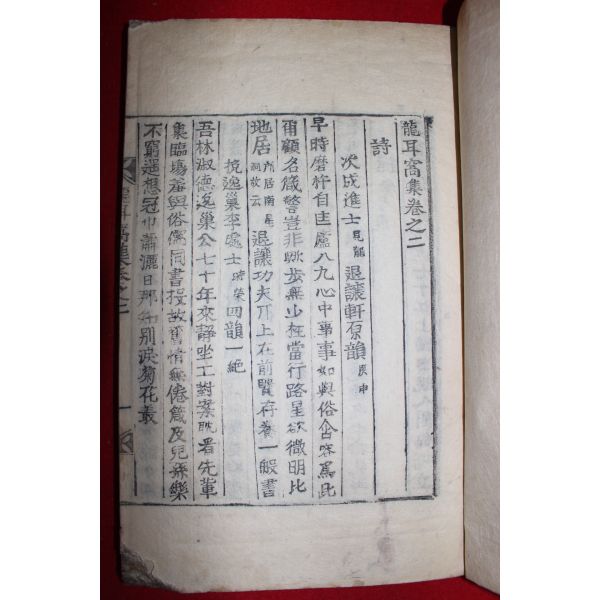 龍耳窩集卷之二
詩
次成進士退讓軒原韻庚申
早時磨杵自匡廬八九心中事事如與俗合容爲此
爾顧名箴警豈非踈步無少枉當行路星欲微明比
地居所居南星洞故云退讓功夫斤上在前賢存養一般書
挽逸巢李處士時榮回韻一絶
吾林淑德逸巢公七十年來靜坐工對案耽看先輩
集臨場羞與俗儒同書授故舊情無倦箴及兒孫樂
不窮遥想冠巾蕭灑日那知別淚菊花叢